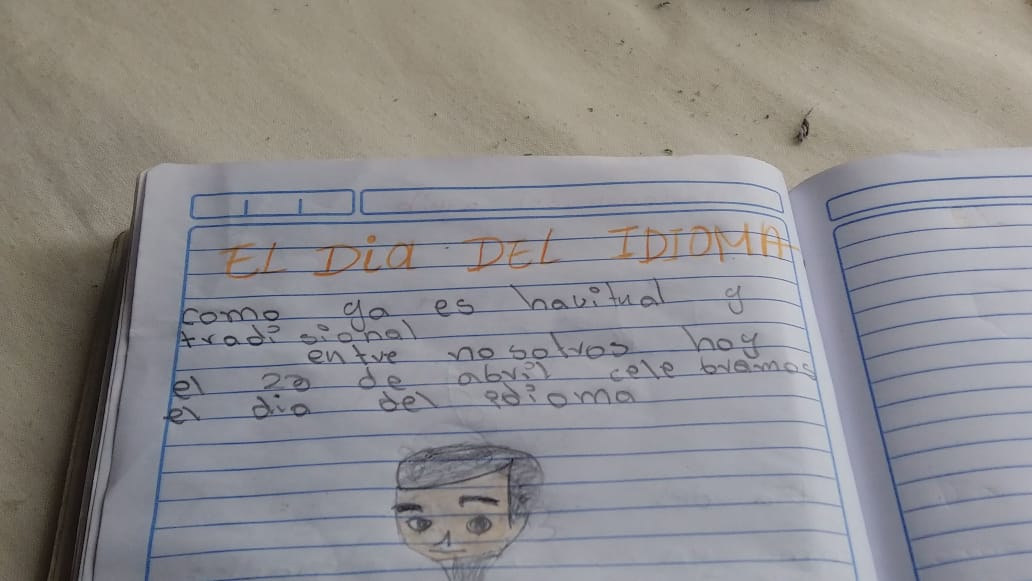 EL DIA DEL IDIOMA
como ya es havitual y
tradi sional
entre nosotros hoy
el 23 de abril cele bramos
el dia del edioma